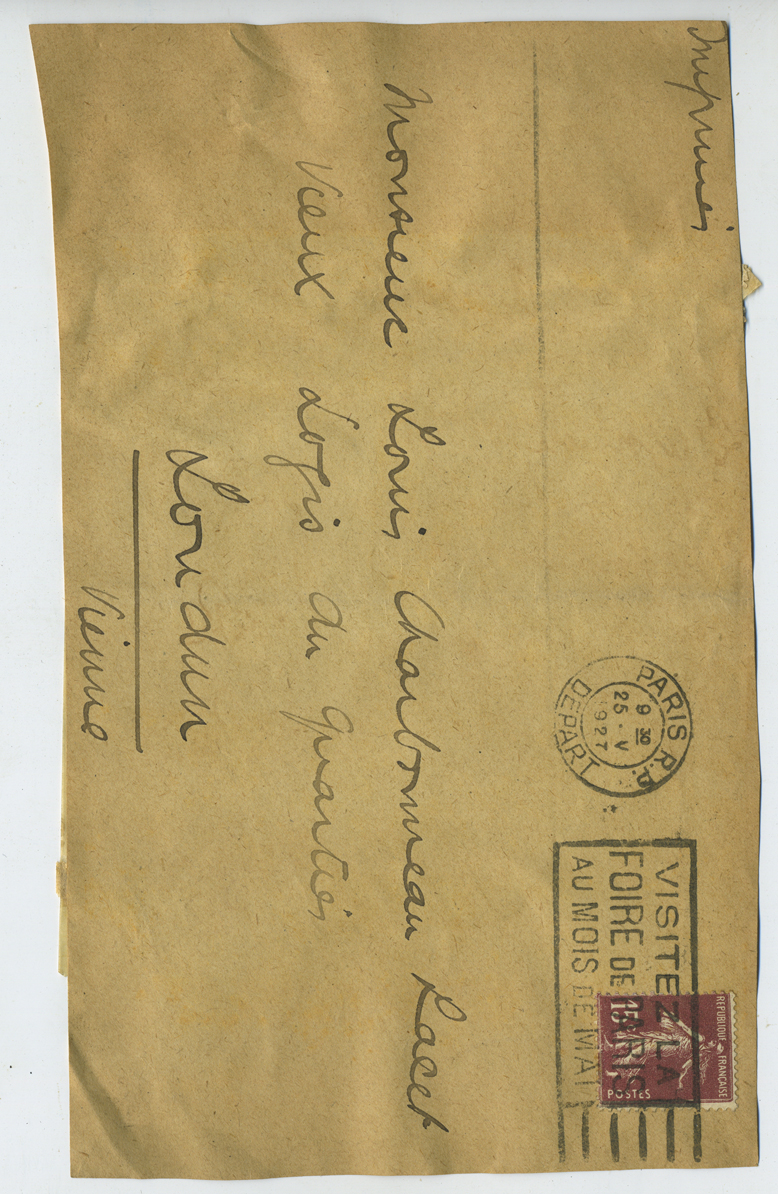 Imprimés
PARIS R.P.
9 30
25 · V
1927
DEPART
VISITEZ LA
FOIRE DE PARIS
AU MOIS DE MAI
REPUBLIQUE FRANÇAISE
15
POSTES
Monsieur Louis Charbonneau Lacet
Vieux Logis du Quartier
Loudun
Vienne